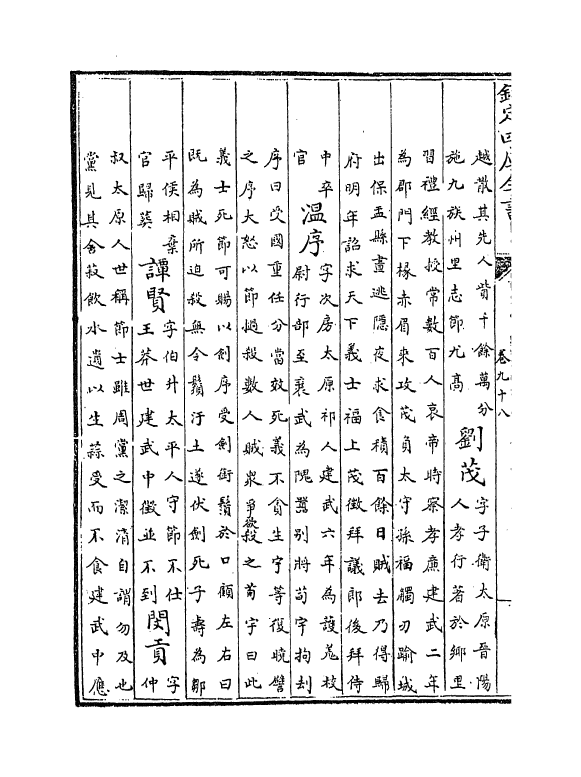 欽定四庫全書
卷九十八
越散其先人貲千餘萬分
施九族州里志節尤高
劉茂
字子衛太原晉陽
人孝行著於鄉里
習禮經教授常數百人哀帝時察孝廉建武二年
為郡門下掾赤眉來攻茂負太守孫福觸刃踰城
出保盂縣晝逃隱夜求食積百餘日賊去乃得歸
府明年詔求天下義士福上茂徵拜議郎後拜侍
中卒
官
溫序
字次房太原祁人建武六年為護羌校
尉行部至襄武為隗囂别將苟宇拘刼
序曰受國重任分當效死義不貪生宇等復曉譬
之序大怒以節撾殺數人賊衆争欲殺之苟宇曰此
義士死節可賜以劍序受劍銜鬚於口顧左右曰
既為賊所迫殺無令鬚汙土遂伏劍死子壽為鄒
平侯相棄
官歸葬
譚賢
字伯升太平人守節不仕
王莽世建武中徵並不到
閔貢
字
仲
叔太原人世稱節士雖周黨之潔清自謂勿及也
黨見其含菽飲水遺以生蒜受而不食建武中應